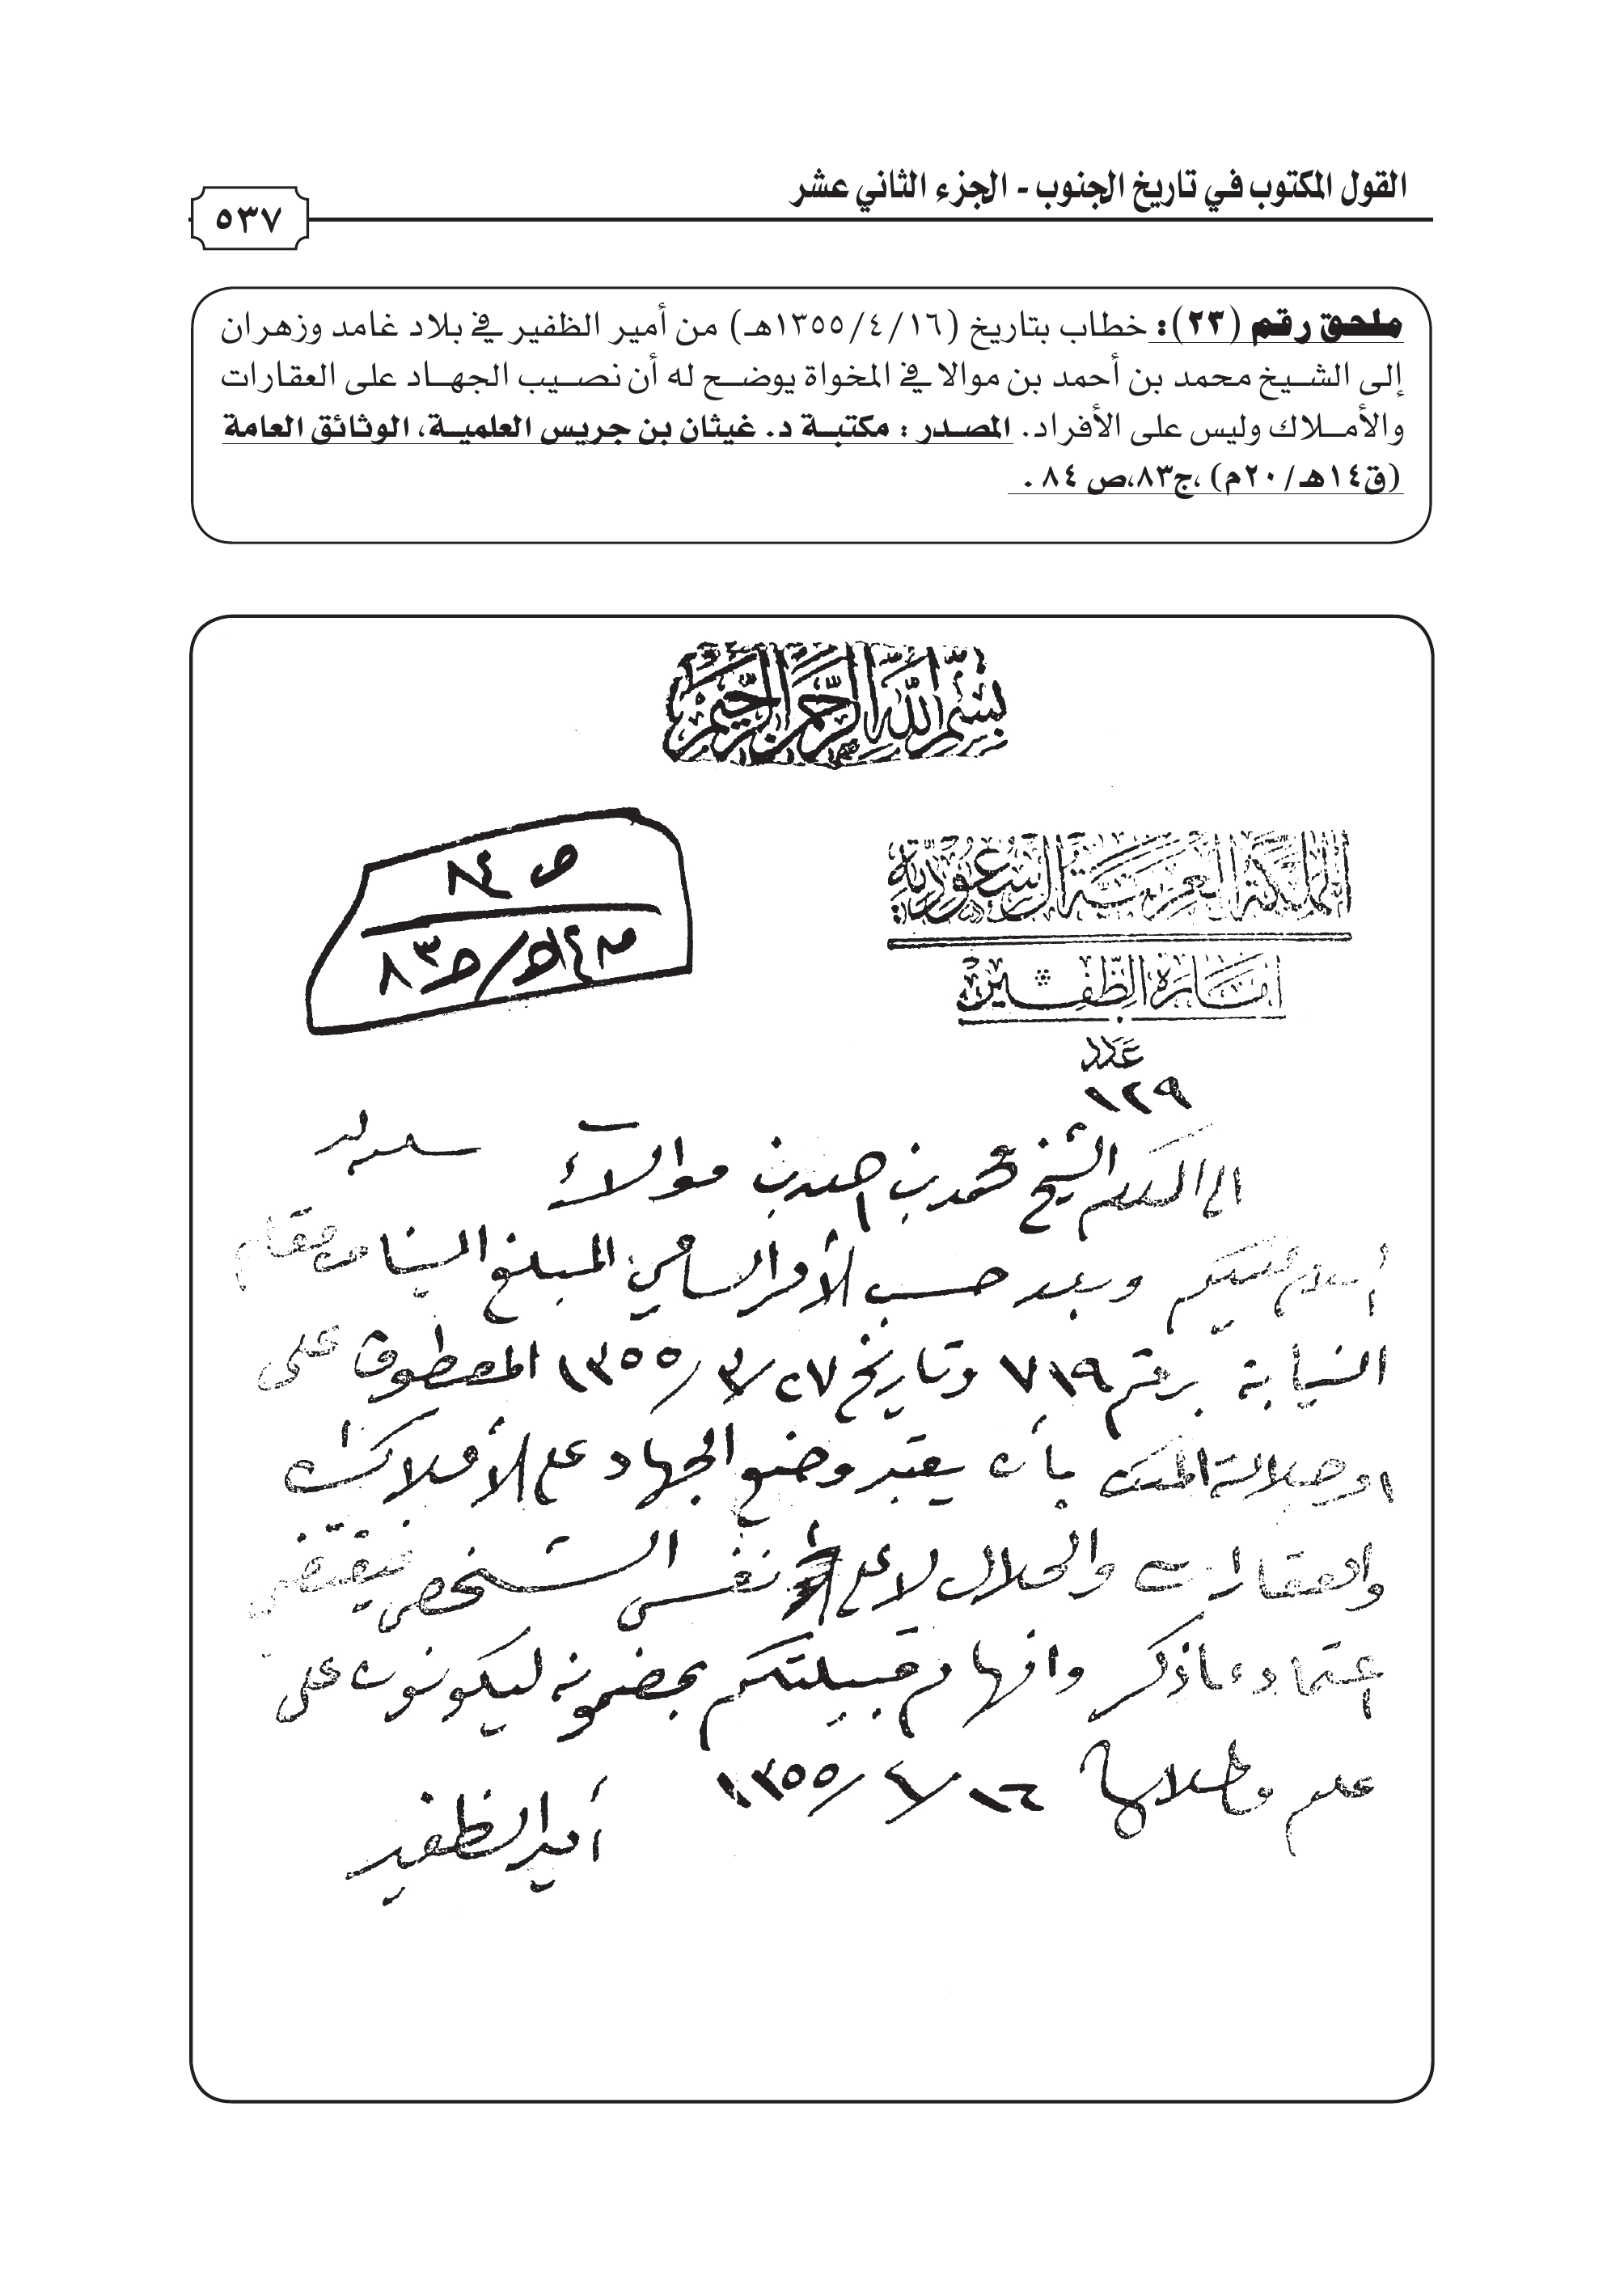 القول المكتوب في تاريخ الجنوب - الجزء الثاني عشر
٥٣٧
ملحق رقم (٢٣): خطاب بتاريخ (١٣٥٥/٤/١٦هـ) من أمير الظفير في بلاد غامد وزهران
إلى الشيخ محمد بن أحمد بن موالا في المخواة يوضح له أن نصيب الجهاد على العقارات
والأملاك وليس على الأفراد. المصدر : مكتبة د. غيثان بن جريس العلمية، الوثائق العامة
(ق١٤هـ/٢٠م) ،ج٨٣،ص ٨٤ .
بسم الله الرحمن الرحيم
المملكة العربية السعودية
امارة الظفير
عدد
١٢٩
ص ٨٤
ق١٤هـ/ج٨٣
الى المكرم الشيخ محمد بن احمد بن موالاء سلمه الله
السلام عليكم وبعد حسب الأمر السامي المبلغ الينا من مقام
النيابة برقم ٧١٩ وتاريخ ٢٧/٣/١٣٥٥ المعطوف على
بأن يعتبر وضع الجهاد على الأملاك
والعقارات والحلال لا على نفس الشخص فيقتضي
اعتماد ماذكر وافهام قبيلتكم بمضمونه ليكونون على
علم ١٦/٤/١٣٥٥
أمير الظفير